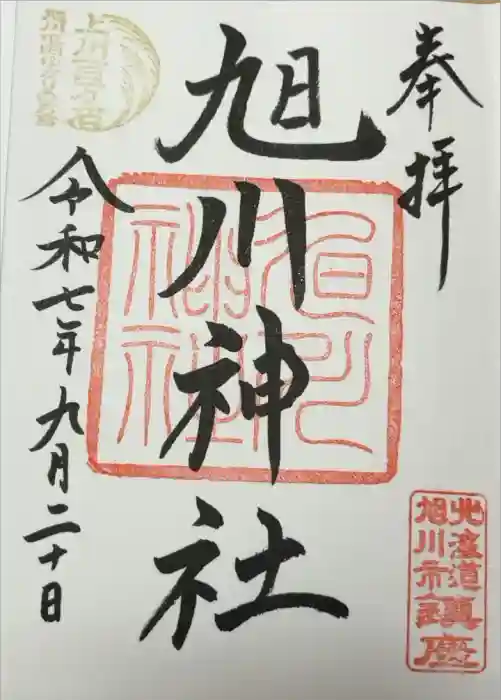 奉拝
旭川神社
令和七年九月二十日
旭川神社
北海道
旭川市
鎮座
上川百万石